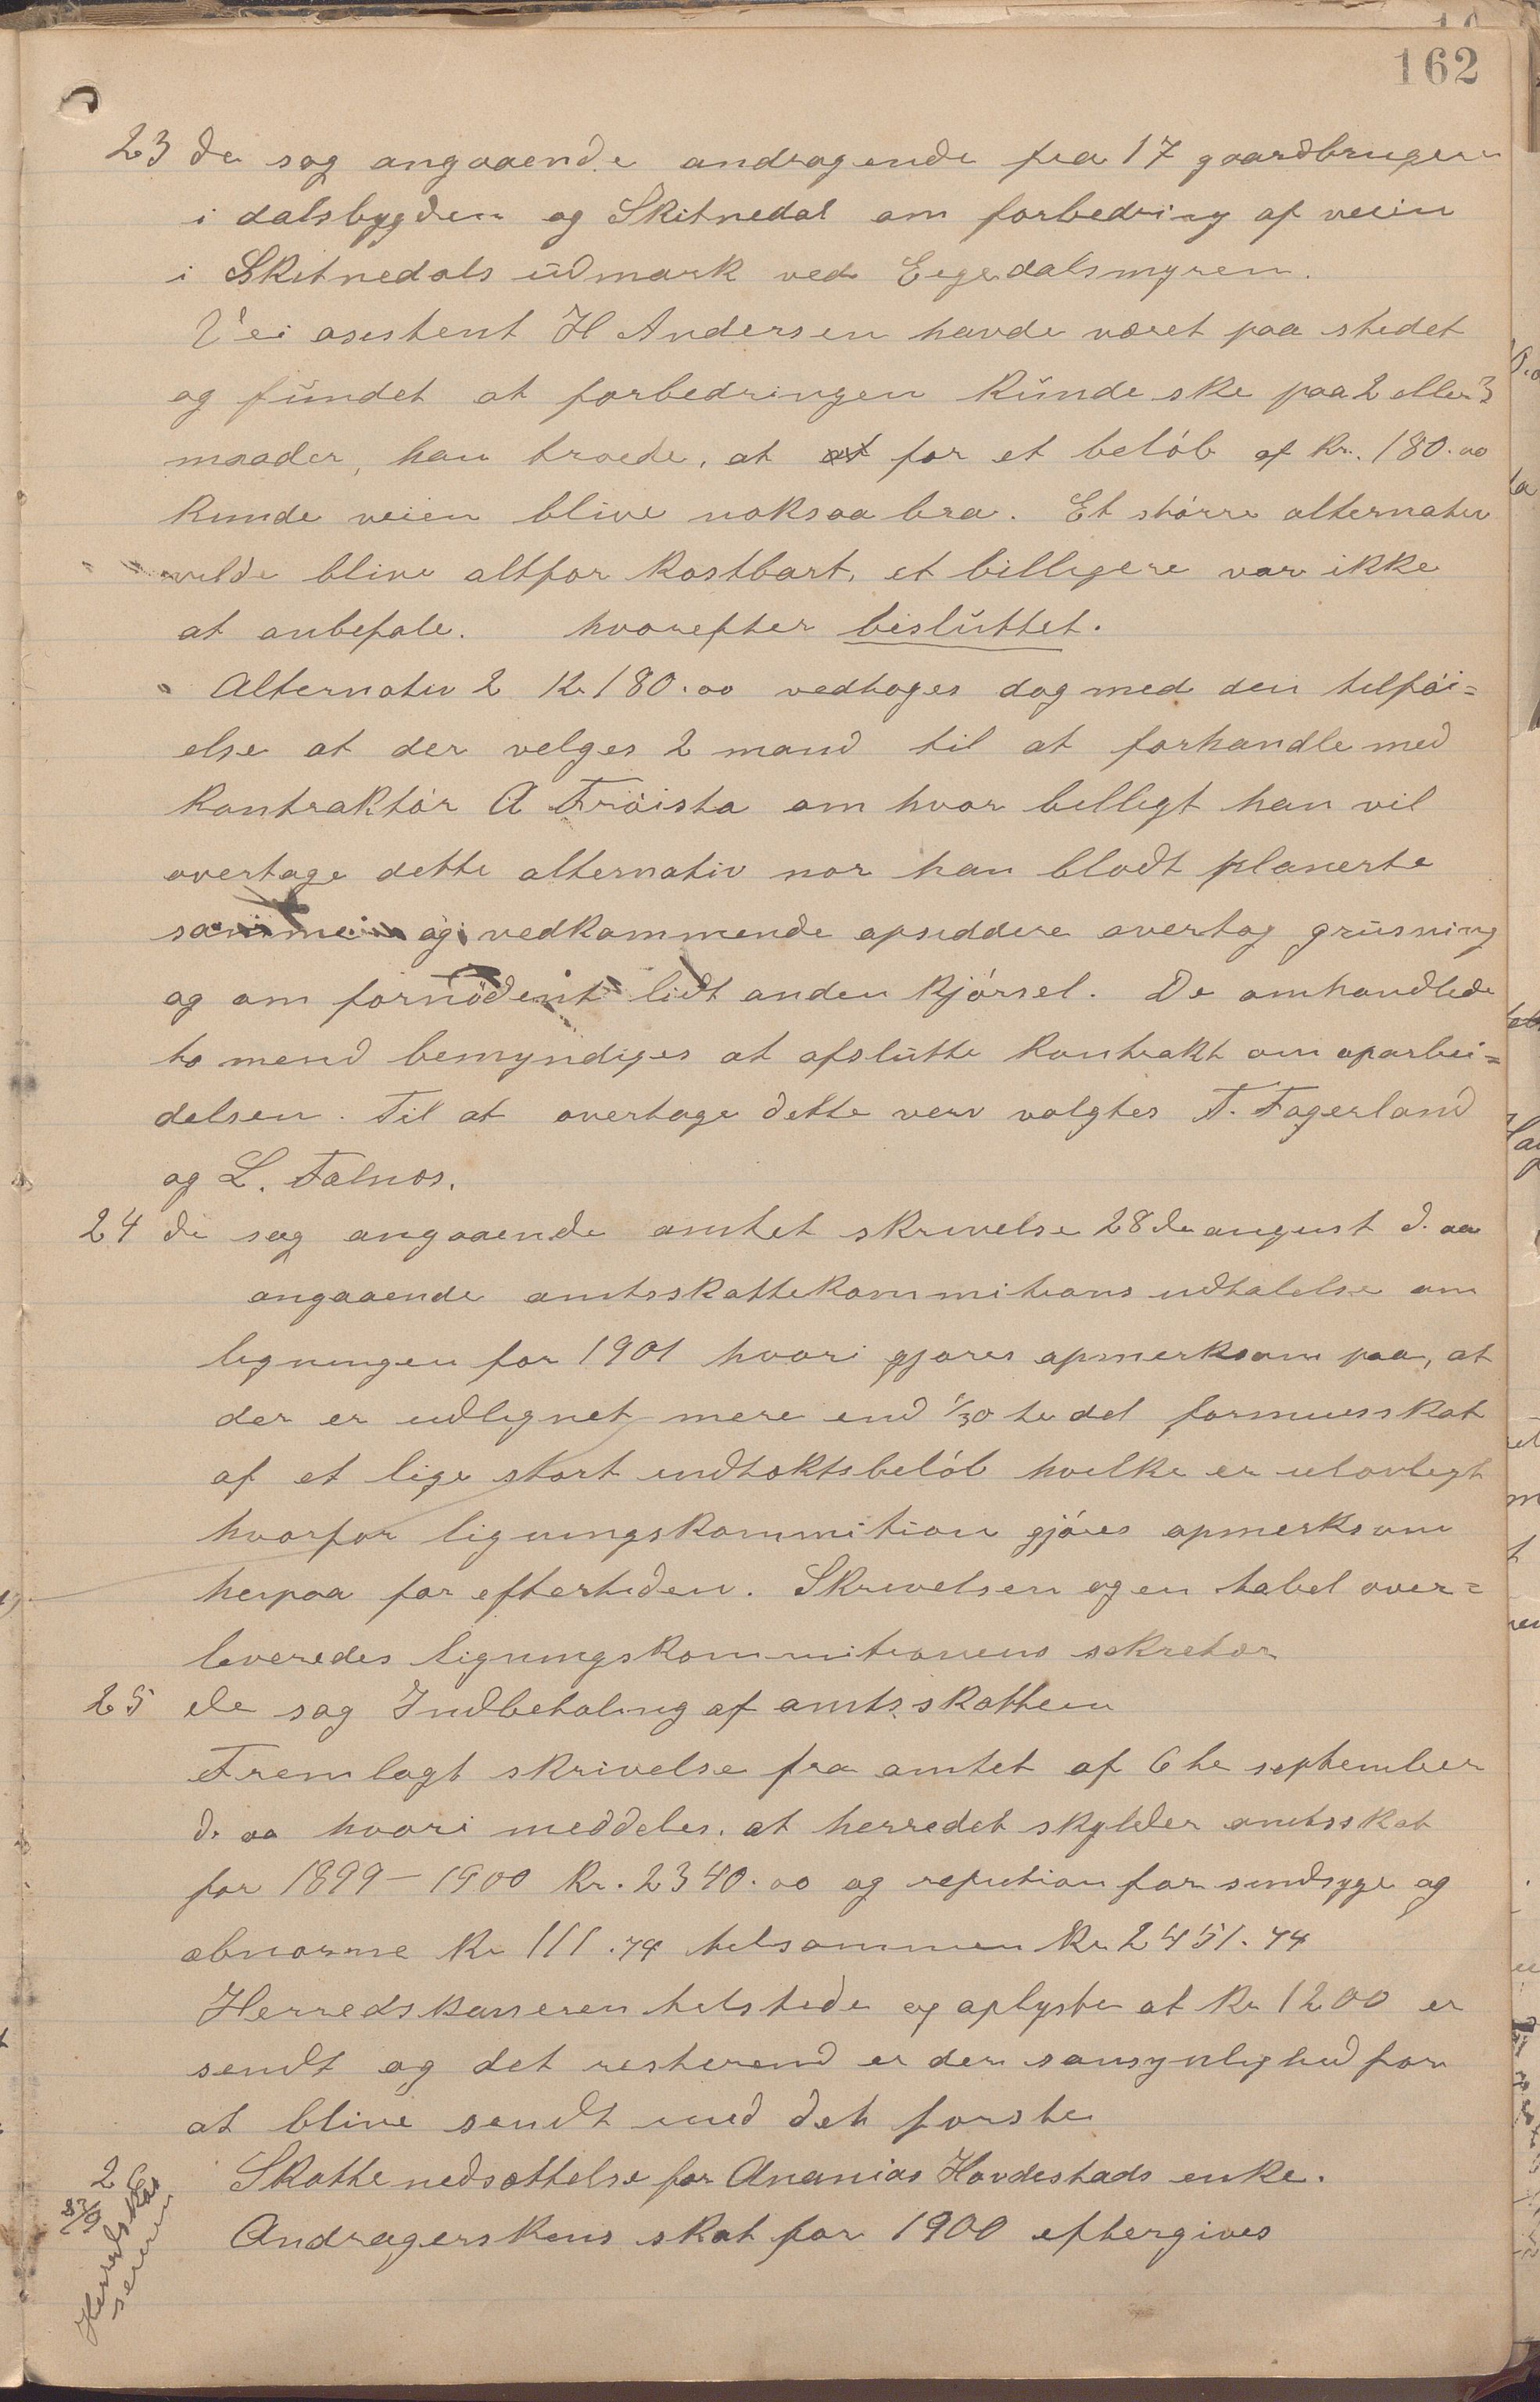 162
23 de sag angaaende andragende fra 17 gaardbrugere
i dalsbygden og Skitnedal om forbedring af veien
i Skitnedals udmark ved Eigedalsmyren.
Vei asistent H Andersen havde været paa stedet
og fundet at forbedringen kunde ske paa 2 eller 3
maader, han troede, at for et beløb af kr. 180.00
kunde veien blive noksaa bra. Et større alternativ
vilde blive altfor kostbart, et billigere var ikke
at anbefale. hvorefter besluttet.
Alternativ 2 Kr 180.00 vedtoges dog med den tilføi=
else at der velges 2 mand til at forhandle med
kontraktør A Frøista om hvor billigt han vil
overtage dette alternativ nor han blodt planerte
samme og vedkommende opsiddere overtog grusning
og om fornødent lidt anden kjørsel. De omhandlede
to mend bemyndiges at afslutte kontrakt om oparbei=
delsen. Til at overtage dette verv valgtes T. Fagerland
og L. Falnes.
24 de sag angaaende amtet skrivelse 28de august d. aa
angaaende amtsskattekommitions udtalelse om
ligningen for 1901 hvori gjøres opmerksom paa, at
der er udlignet mere end 1/30 te del formuesskat
af et lige stort indtæktsbeløb hvilke er ulovligt
hvorfor ligningskommition gjøres opmerksom
herpaa for eftertiden. Skrivelsen og en tabel over=
leveredes ligningskommitionens sekretær
25 de sag Indbetaling af amtsskatten
Fremlagt skrivelse fra amtet af 6te september
d. aa hvori meddeles. at herredet skylder amtsskat
for 1899-1900 Kr. 2340.00 og refution for sindsyge og
abnorme Kr 111.74 tilsammen Kr 2451.74
Herredskasseren tilstede og oplyste at Kr 1200 er
sendt og det resterend er der sansynlighed for
at blive sendt med det første
26 Skattenedsættelse for Ananias Hovdestads enke.
Andragerskens skat for 1900 eftergives
23/9
Herredskas
sereren